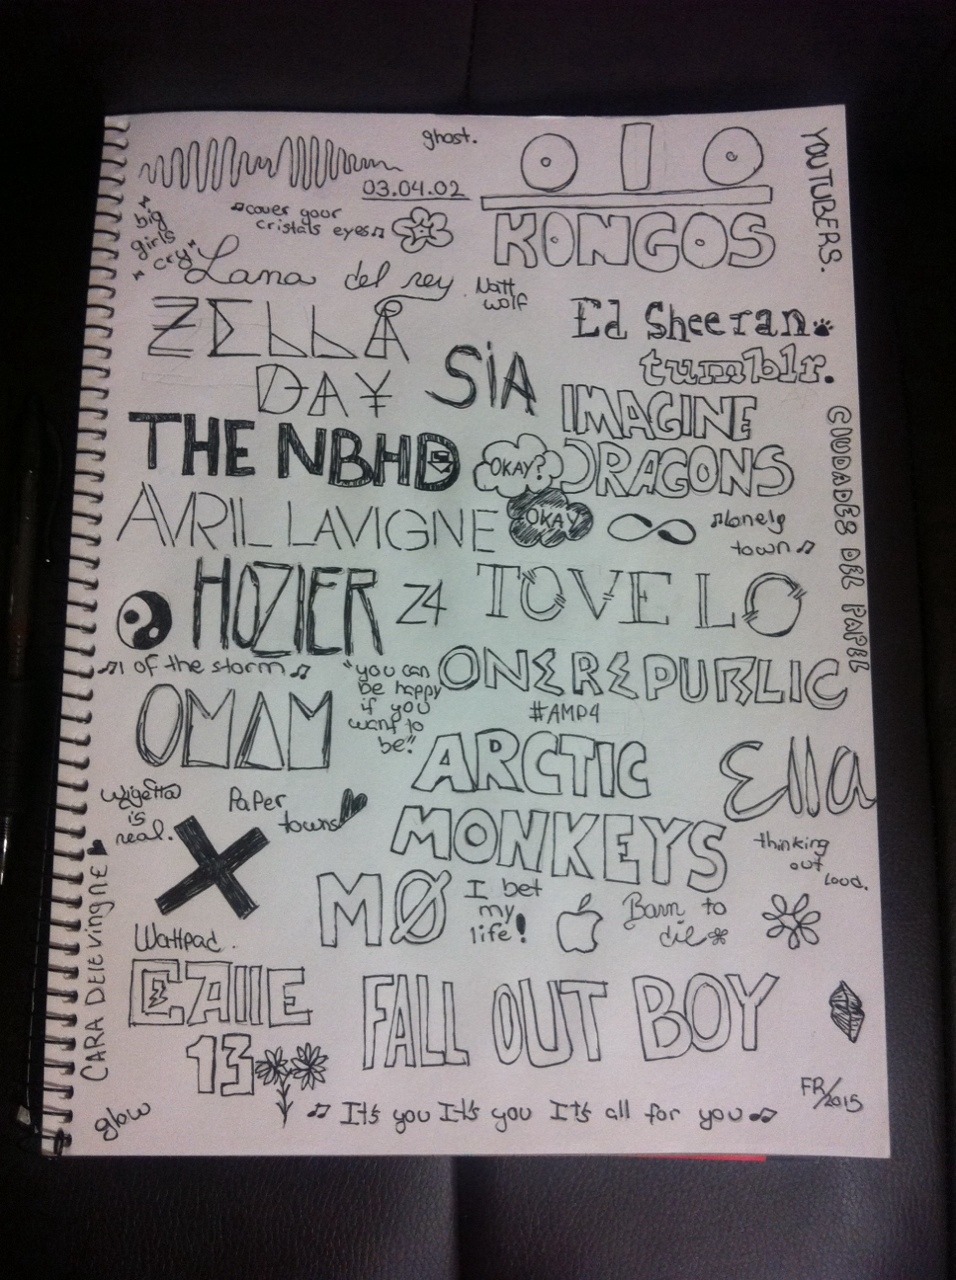 ghost.
010
03.04.02
YOUTUBERS.
"big
girls
cry"
♫cover goor
cristals eyes♫
KONGOS
Lana del rey
Natt
wolf
ZELLA
DA¥
Ed Sheeran.
SiA
tumblr.
IMAGINE
DRAGONS
THE NBHD
OKAY?
OKAY
CIUDADES DEL PAPEL
AVRIL LAVIGNE
♫lonely
town♫
HOZIER
Z4
TOVE LO
♫1 of the storm♫
"you can
be happy
if you
want to
be"
ONEREPUBLIC
#AMP4
OMAM
ARCTIC
MONKEYS
Ella
Wigetta
is
real.
Paper
towns
thinking
out
loud.
CARA DElEVingnE
MØ
I bet
my
life!
Barn to
die
Wattpad.
CAllE
13
FALL OUT BOY
FR/2015
glow
♫ It's you It's you It's all for you♫